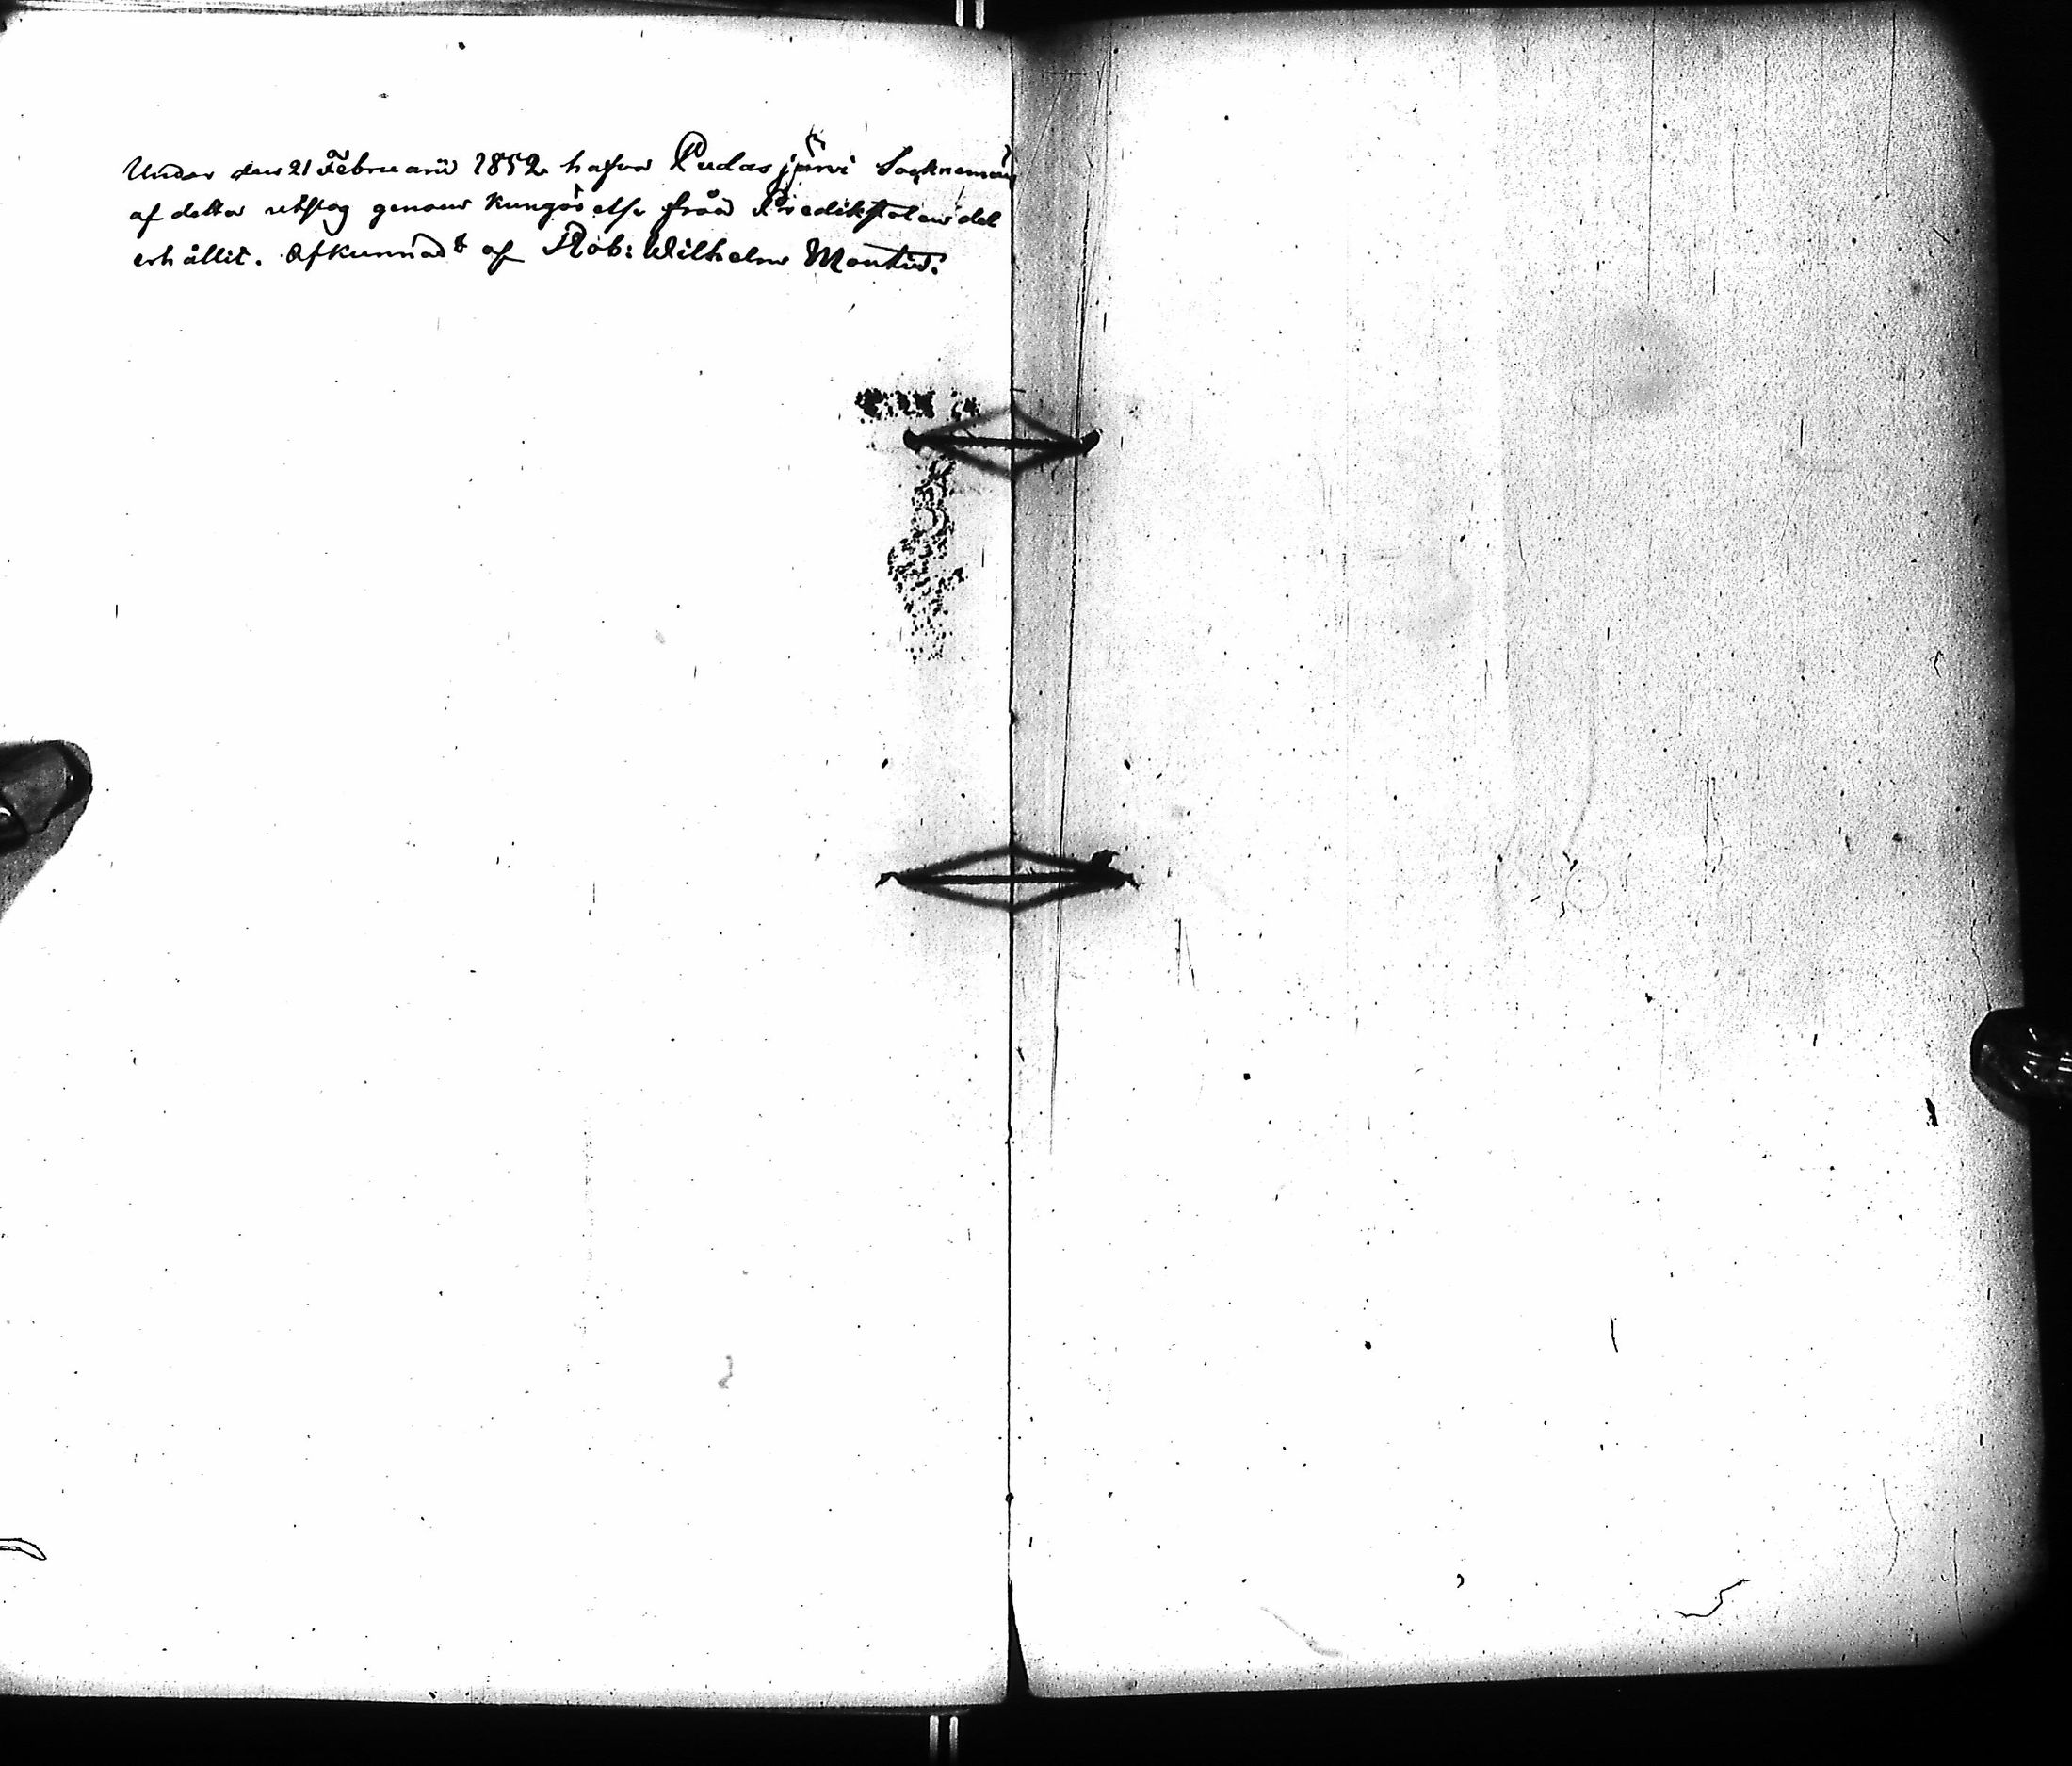 Under den 21 Februarii 1852 hafva Pudasjärvi Sockneman
af detta utslag genom Kungörelse från Predikstolen del
erhållit. Afkunnadt af Rob: Wilhelm Montin.